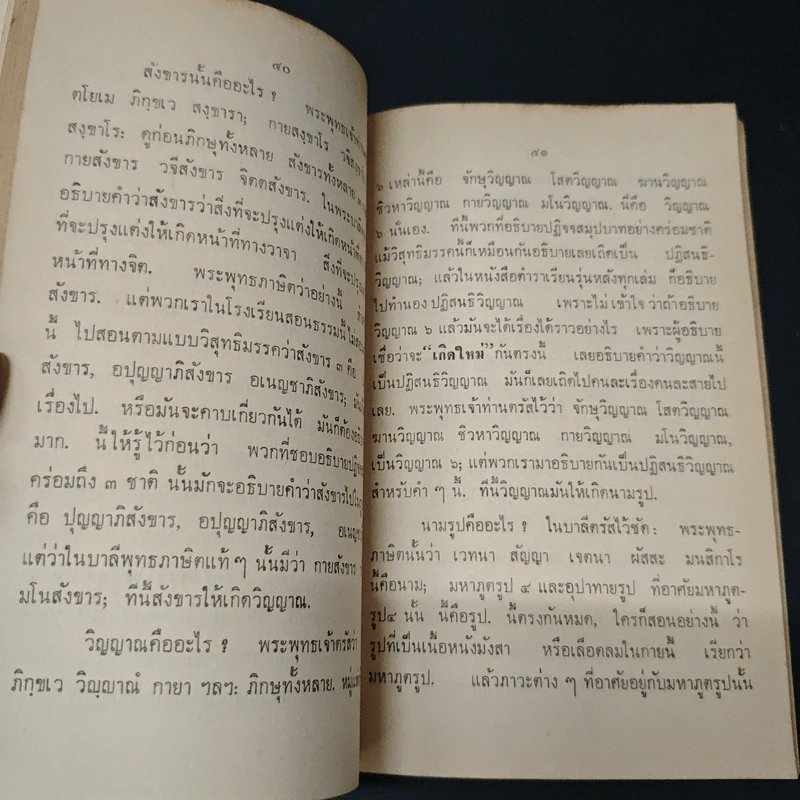 ๔๐
สังขารนั้นคืออะไร ? พระพุทธเจ้า
ตโยเม ภิกฺขเว สงฺขารา; กายสงฺขาโร วจี
สงฺขาโร: ดูก่อนภิกษุทั้งหลาย สังขารทั้งหลาย
กายสังขาร วจีสังขาร จิตตสังขาร. ในพระบาลี
อธิบายคำว่าสังขารว่าสิ่งที่จะปรุงแต่งให้เกิดหน้า
ที่จะปรุงแต่งให้เกิดหน้าที่ทางวาจา สิ่งที่จะ
หน้าที่ทางจิต. พระพุทธภาษิตว่าอย่างนี้
สังขาร. แต่พวกเราในโรงเรียนสอนธรรมนี้
นี้ ไปสอนตามแบบวิสุทธิมรรคว่าสังขาร ๓ คือ
สังขาร, อปุญญาภิสังขาร อเนญชาภิสังขาร;
เรื่องไป. หรือมันจะคาบเกี่ยวกันได้ มันก็ต้อง
มาก. นี้ให้รู้ไว้ก่อนว่า พวกที่ชอบอธิบาย
คร่อมถึง ๓ ชาติ นั้นมักจะอธิบายคำว่าสังขารไป
คือ ปุญญาภิสังขาร, อปุญญาภิสังขาร,
แต่ว่าในบาลีพุทธภาษิตแท้ ๆ นั้นมีว่า กายสังขาร
มโนสังขาร; ทีนี้สังขารให้เกิดวิญญาณ.
วิญญาณคืออะไร ? พระพุทธเจ้าตรัสว่า
ภิกฺขเว วิญฺญาณํ กายา ฯลฯ: ภิกษุทั้งหลาย.
๔๑
๖ เหล่านี้คือ จักษุวิญญาณ โสตวิญญาณ ฆานวิญญาณ
ชิวหาวิญญาณ กายวิญญาณ มโนวิญญาณ. นี่คือ วิญญาณ
๖ นั่นเอง. ทีนี้พวกที่อธิบายปฏิจจสมุปบาทอย่างคร่อมชาติ
แม้วิสุทธิมรรคนี้ก็เหมือนกันอธิบายเลยเถิดเป็น ปฏิสนธิ-
วิญญาณ; แล้วในหนังสือตำราเรียนรุ่นหลังทุกเล่ม ก็อธิบาย
ไปทำนอง ปฏิสนธิวิญญาณ เพราะไม่เข้าใจ ว่าถ้าอธิบาย
วิญญาณ ๖ แล้วมันจะได้เรื่องได้ราวอย่างไร เพราะผู้อธิบาย
เชื่อว่าจะ “เกิดใหม่” กันตรงนี้ เลยอธิบายคำว่าวิญญาณนี้
เป็นปฏิสนธิวิญญาณ มันก็เลยเถิดไปคนละเรื่องคนละสายไป
เลย. พระพุทธเจ้าท่านตรัสไว้ว่า จักษุวิญญาณ โสตวิญญาณ
ฆานวิญญาณ ชิวหาวิญญาณ กายวิญญาณ มโนวิญญาณ,
เป็นวิญญาณ ๖; แต่พวกเรามาอธิบายกันเป็นปฏิสนธิวิญญาณ
สำหรับคำ ๆ นี้. ทีนี้วิญญาณมันให้เกิดนามรูป.
นามรูปคืออะไร ? ในบาลีตรัสไว้ชัด : พระพุทธ-
ภาษิตนั้นว่า เวทนา สัญญา เจตนา ผัสสะ มนสิกาโร
นี้คือนาม; มหาภูตรูป ๔ และอุปาทายรูป ที่อาศัยมหาภูต-
รูป๔ นั้น นี้คือรูป. นี้ตรงกันหมด, ใครก็สอนอย่างนี้ ว่า
รูปที่เป็นเนื้อหนังมังสา หรือเลือดลมในกายนี้ เรียกว่า
มหาภูตรูป. แล้วภาวะต่าง ๆ ที่อาศัยอยู่กับมหาภูตรูปนั้น